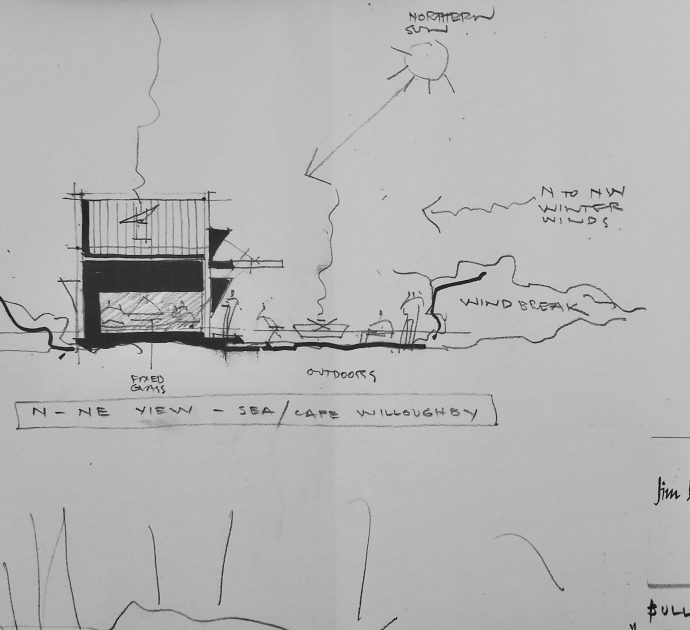 NORTHERN
SUN
N TO NW
WINTER
WINDS.
WINDBREAK
FIXED
GLASS
OUTDOORS
N-NE VIEW - SEA/CAPE WILLOUGHBY
Jim
BULL
"